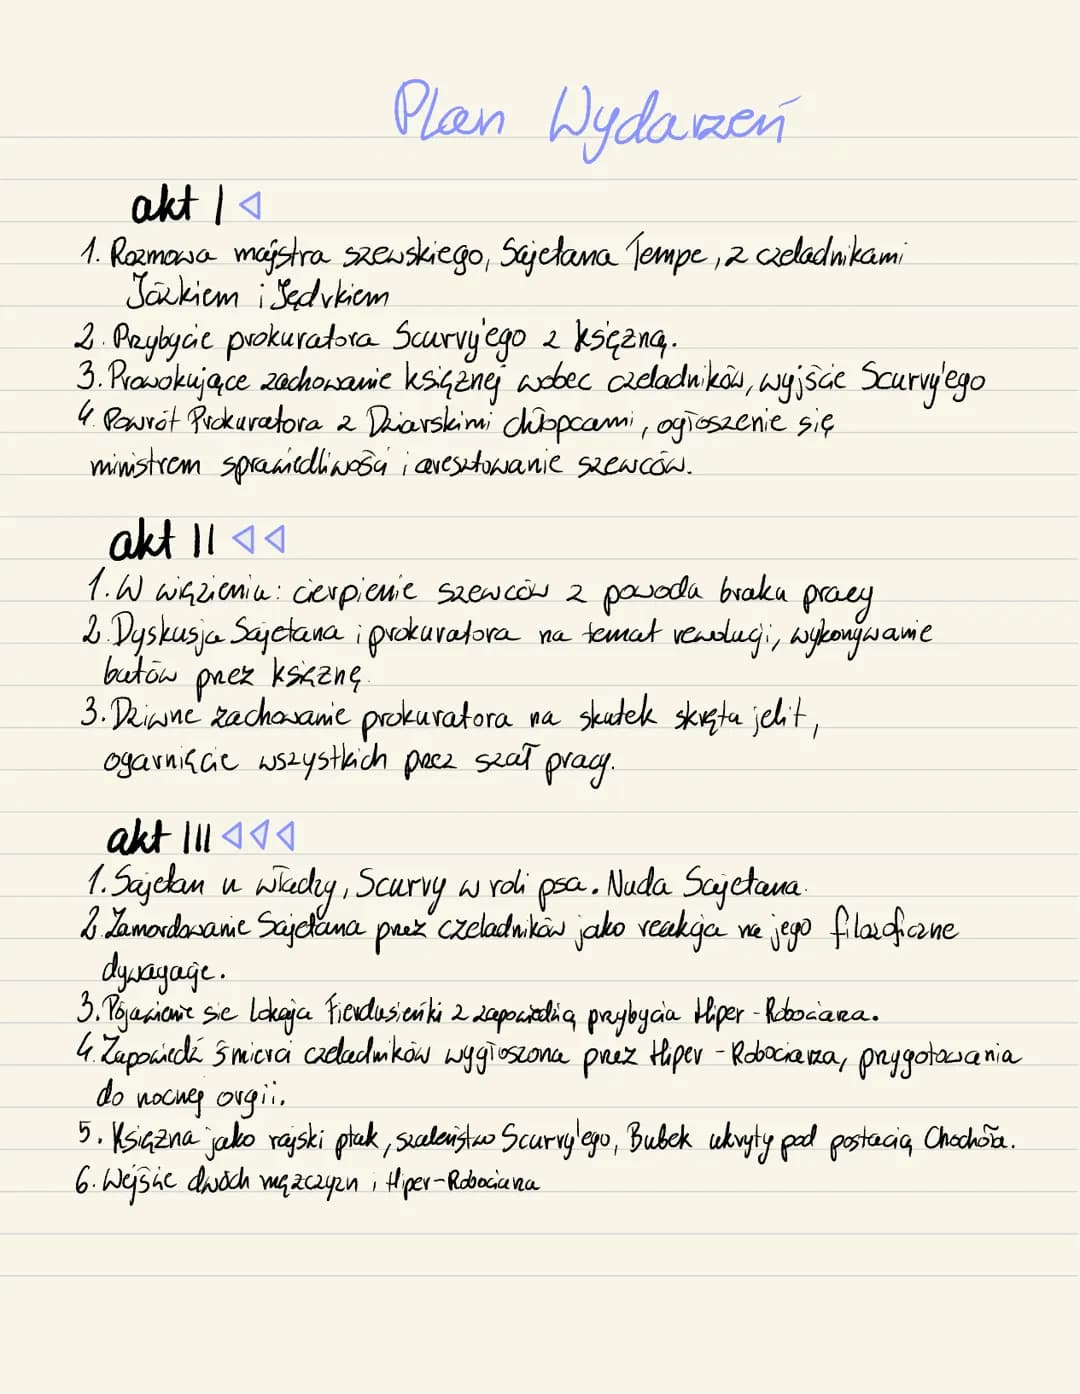 Plan Wydarzeń
akt I
1. Rozmowa majstra szewskiego, Sajetana Tempe, z czeladnikami
Józkiem i Jędrkiem
2. Przybycie prokuratora Scurvy'ego z księżną.
3. Prowokujące zachowanie księżnej wobec czeladników, wyjście Scurvy'ego
4. Powrót Prokuratora z Dziarskimi chłopcami, ogłoszenie się
ministrem sprawiedliwości i aresztowanie szewców.
akt II
1. W więzieniu: cierpienie szewców z powodu braku pracy
2. Dyskusja Sajetana i prokuratora na temat rewolucji, wykonywanie
butów przez księżnę.
3. Dziwne zachowanie prokuratora na skutek skrętu jelit,
ogarnięcie wszystkich przez szał pracy.
akt III
1. Sajetan u władzy, Scurvy w roli psa. Nuda Sajetana.
2. Zamordowanie Sajetana przez czeladników jako reakcja na jego filozoficzne
dywagacje.
3. Pojawienie sie Lokaja Fierdusieńki z zapowiedzią przybycia Hiper-Robociarza.
4. Zapowiedź śmierci czeladników wygłoszona przez Hiper-Robociarza, przygotowania
do nocnej orgii.
5. Księżna jako rajski ptak, szaleństwo Scurvy'ego, Bubek ukryty pod postacią Chochoła.
6. Wejście dwóch mężczyzn i Hiper-Robociarza